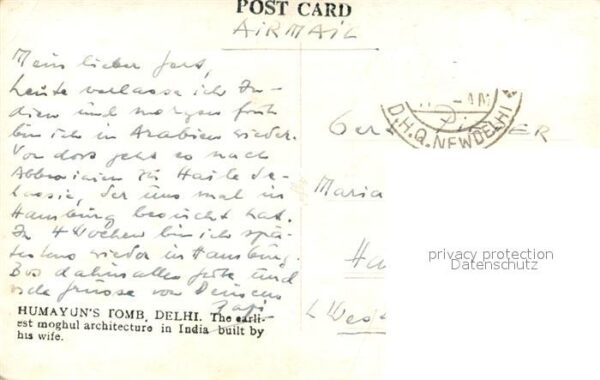 POST CARD
AIRMAIL
Mein lieber
heute verlasse ich In-
dien und morgen früh
bin ich in Arabien wieder.
Von dort geht es nach
Abbessinien zu Haile Se-
lassie, der uns mal in
Hamburg besucht hat.
In 4 Wochen bin ich spä-
testens wieder in Hamburg.
Bis dahin alles gute und
viele Grüsse von Deinem
HUMAYUN'S TOMB, DELHI. The earli-
est moghul architecture in India built by
his wife.
D.H.Q. NEW DELHI
Maria
privacy protection
Datenschutz